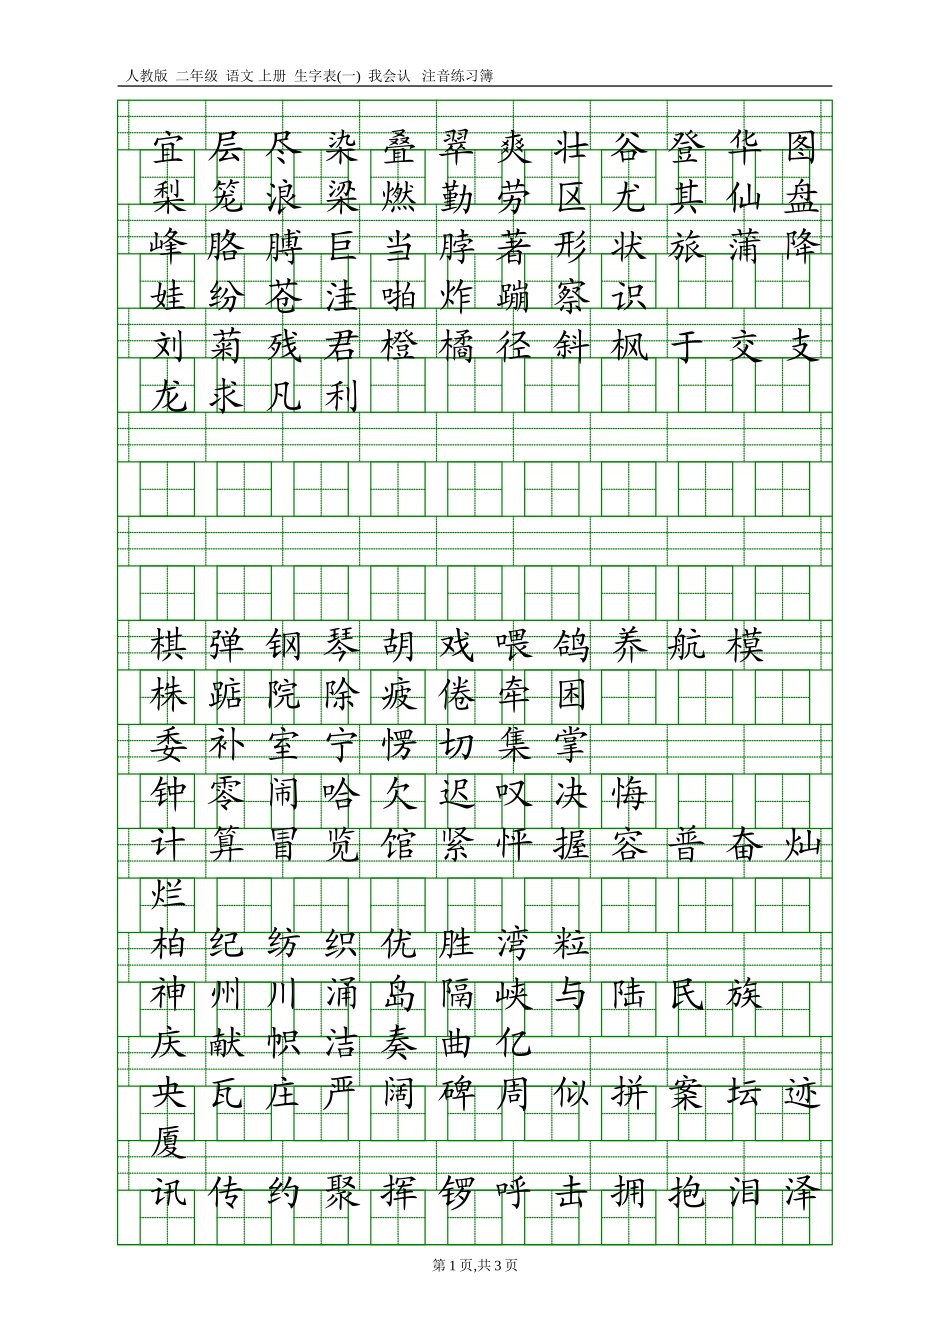 人教版 二年级 语文 上册 生字表(一) 我会认 注音练习簿
宜 层 尽 染 叠 翠 爽 壮 谷 登 华 图
梨 笼 浪 梁 燃 勤 劳 区 尤 其 仙 盘
峰 胳 膊 巨 当 脖 著 形 状 旅 蒲 降
娃 纷 苍 洼 啪 炸 蹦 察 识
刘 菊 残 君 橙 橘 径 斜 枫 于 交 支
龙 求 凡 利
棋 弹 钢 琴 胡 戏 喂 鸽 养 航 模
株 踮 院 除 疲 倦 牵 困
委 补 室 宁 愣 切 集 掌
钟 零 闹 哈 欠 迟 叹 决 悔
计 算 冒 览 馆 紧 怦 握 容 普 奋 灿
烂
柏 纪 纺 织 优 胜 湾 粒
神 州 川 涌 岛 隔 峡 与 陆 民 族
庆 献 帜 洁 奏 曲 亿
央 瓦 庄 严 阔 碑 周 似 拼 案 坛 迹
厦
讯 传 约 聚 挥 锣 呼 击 拥 抱 泪 泽
第 1 页,共 3 页